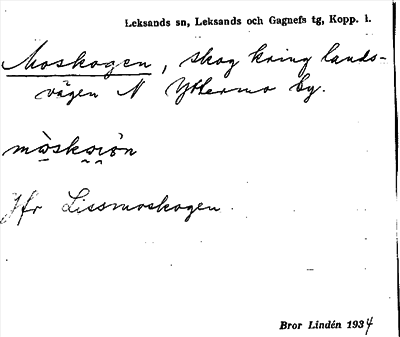 Leksands sn, Leksands och Gagnefs tg, Kopp. l.
Moskogen, skog kring lands-
vägen N Yttermo by.
Jfr Lissmoskogen.
Bror Lindén 1934